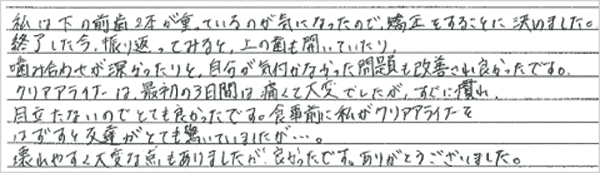 私は下の前歯2本が重っているのが気になったので、矯正をすることに決めました。
終了した今、振り返ってみると、上の歯も開いていたり、
噛み合わせが深かったりと、自分が気付かなかった問題も改善され良かったです。
クリアアライナーは、最初の3日間は痛くて大変でしたが、すぐに慣れ、
目立たないのでとても良かったです。食事前に私がクリアアライナーを
はずすと友達がとても驚いていましたが…。
壊れやすく大変な点もありましたが、良かったです。ありがとうございました。